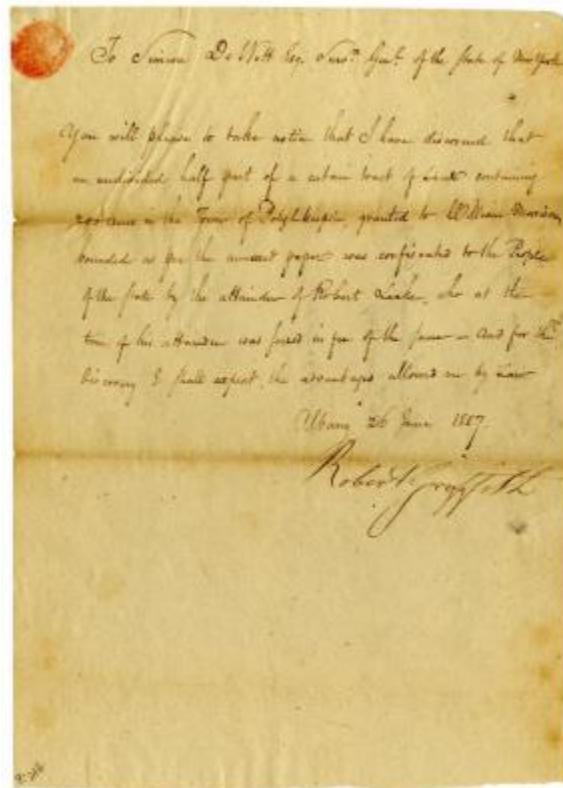 To Simeon De Witt Esq. Surv.r Gen.l of the State of New York
You will please to take notice that I have discovered that
an undivided half part of a certain tract of Land containing
200 acres in the Town of granted to William Morrison
bounded as per the annexed paper was confiscated to the People
of the State by the attainder of Robert Leake, who at the
time of his attainder was seized in fee of the same – And for this
discovery I shall expect the advantages allowed me by Law
Albany 26 June 1807
Robert Griffith